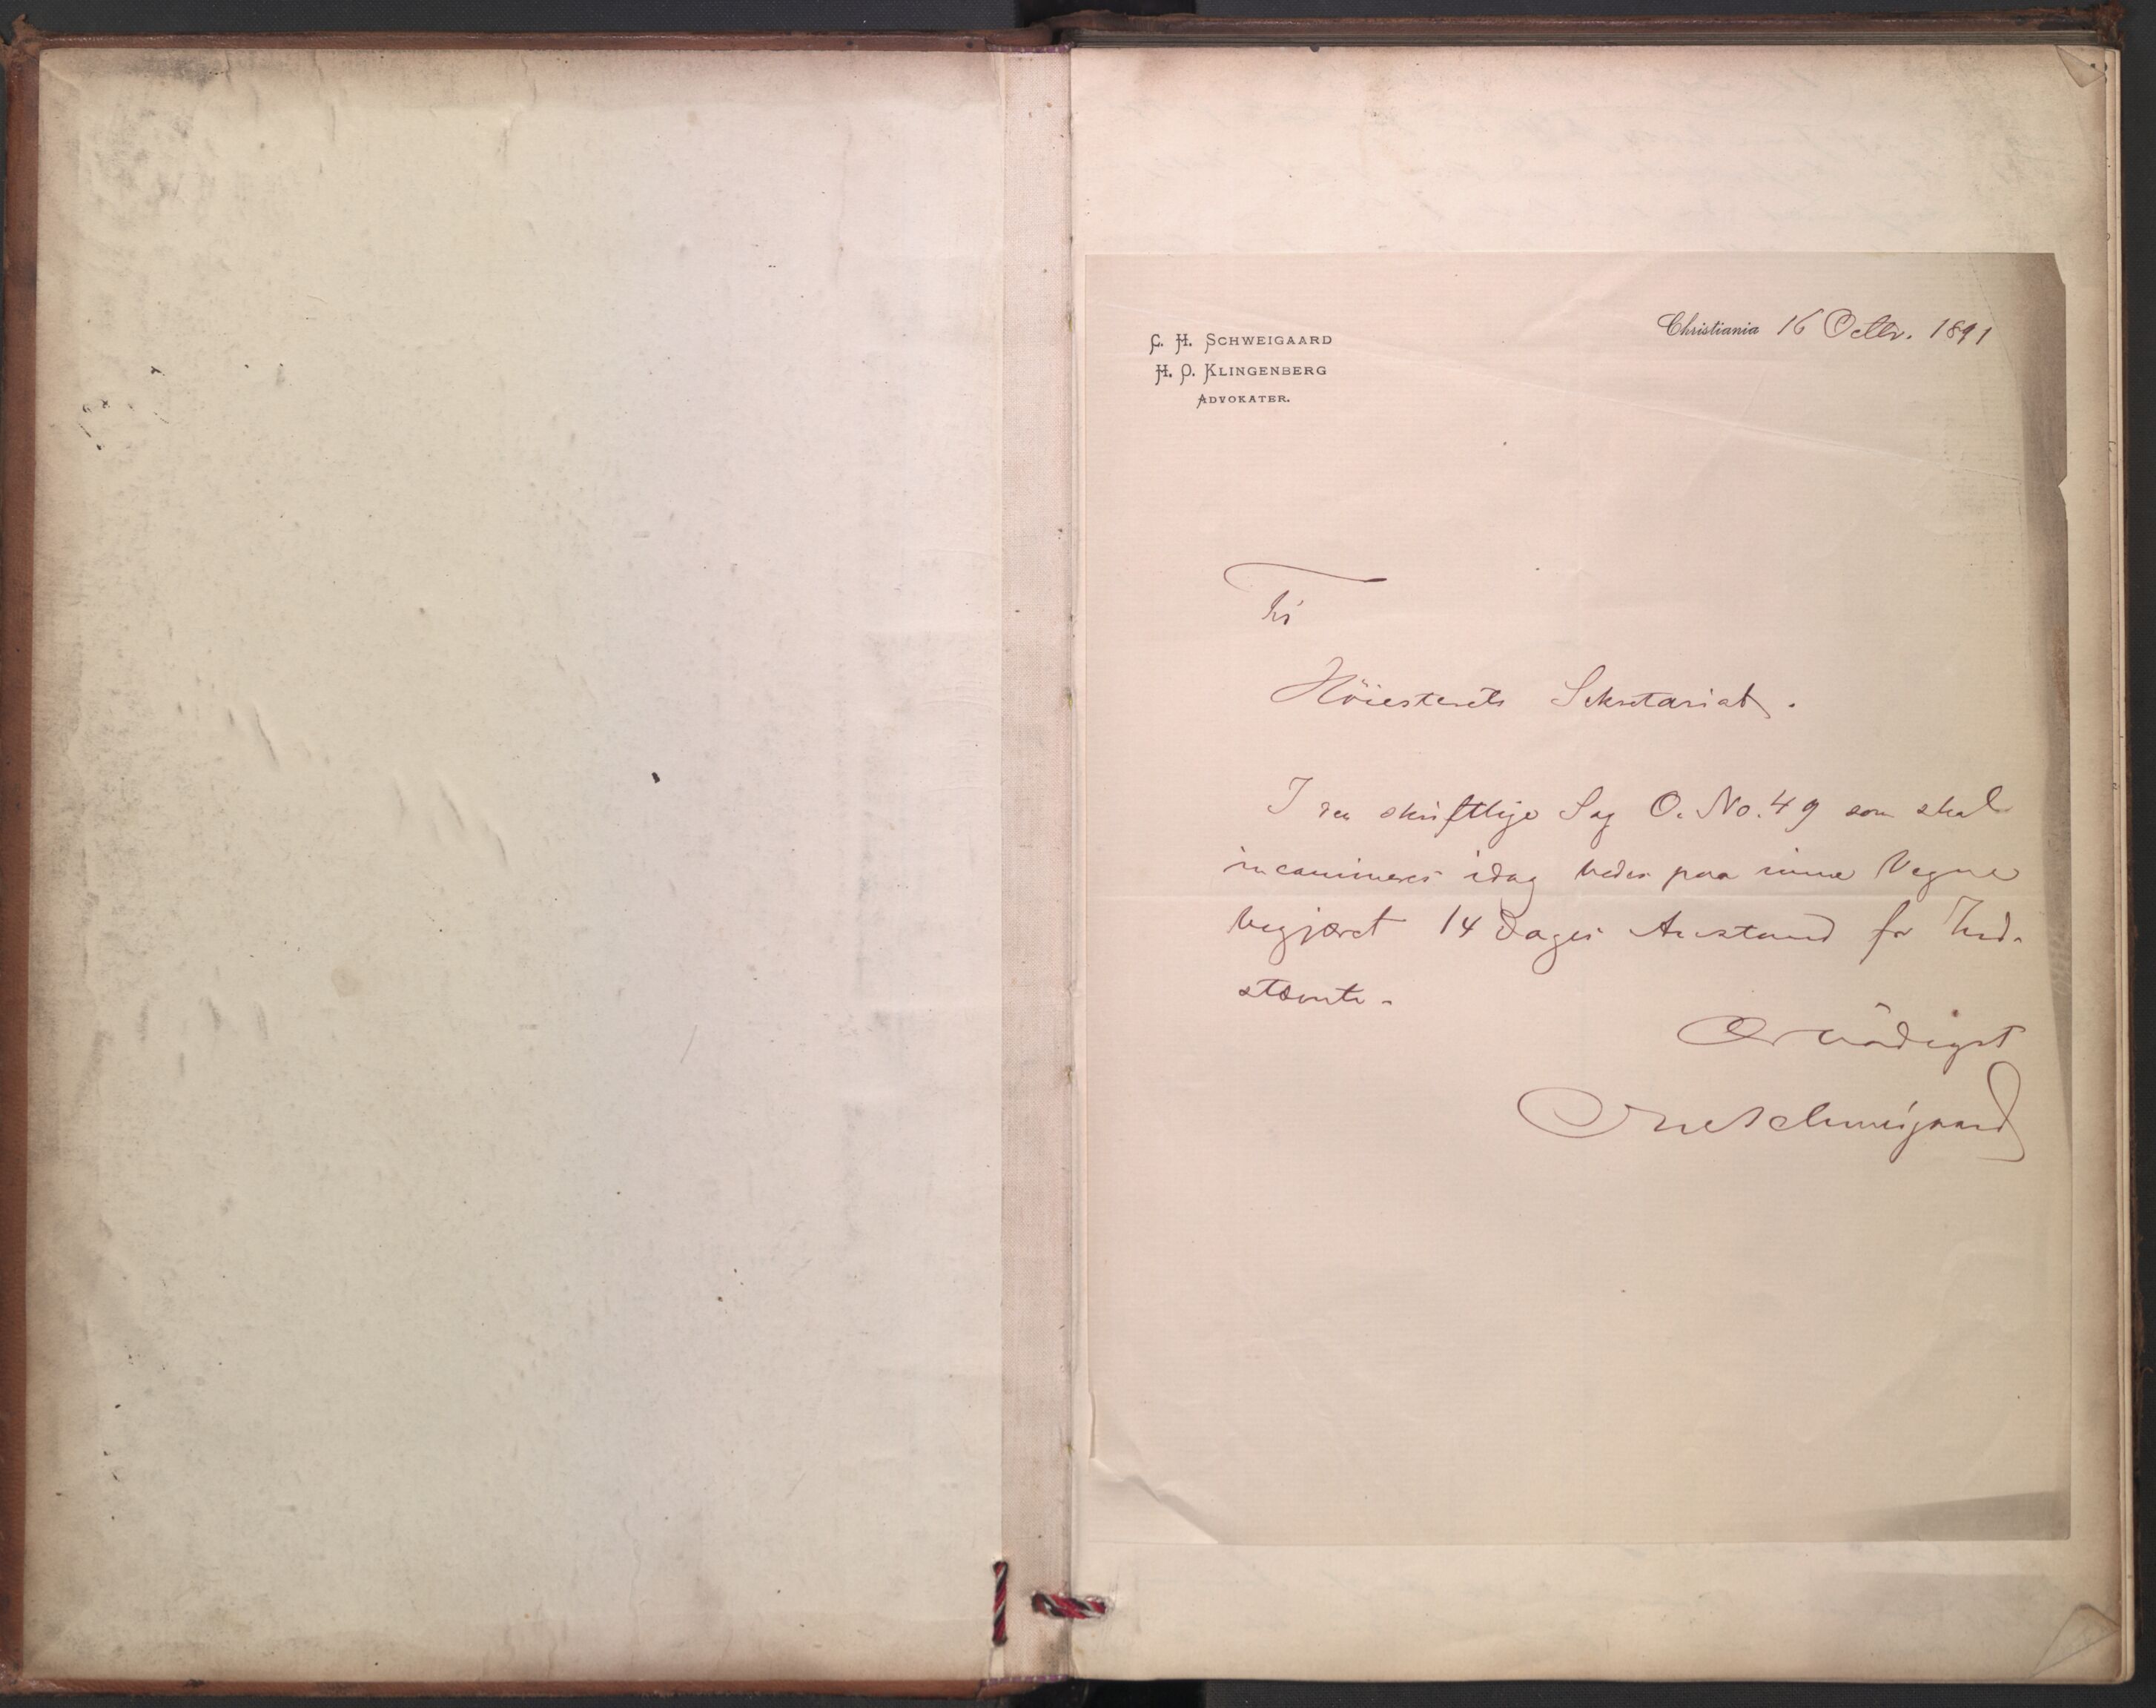 C. H. SCHWEIGAARD
H. O. KLINGENBERG
ADVOKATER.
Christiania 16 Octbr. 1891
Til
Höiesterets Sekretariat.
I den skriftlige Sag O. No. 49 som skal
incamineres idag bedes paa mine Vegne
begjæret 14 Dages Anstand for Ind-
stævnte.
Ærbödigst
Chr Schweigaard